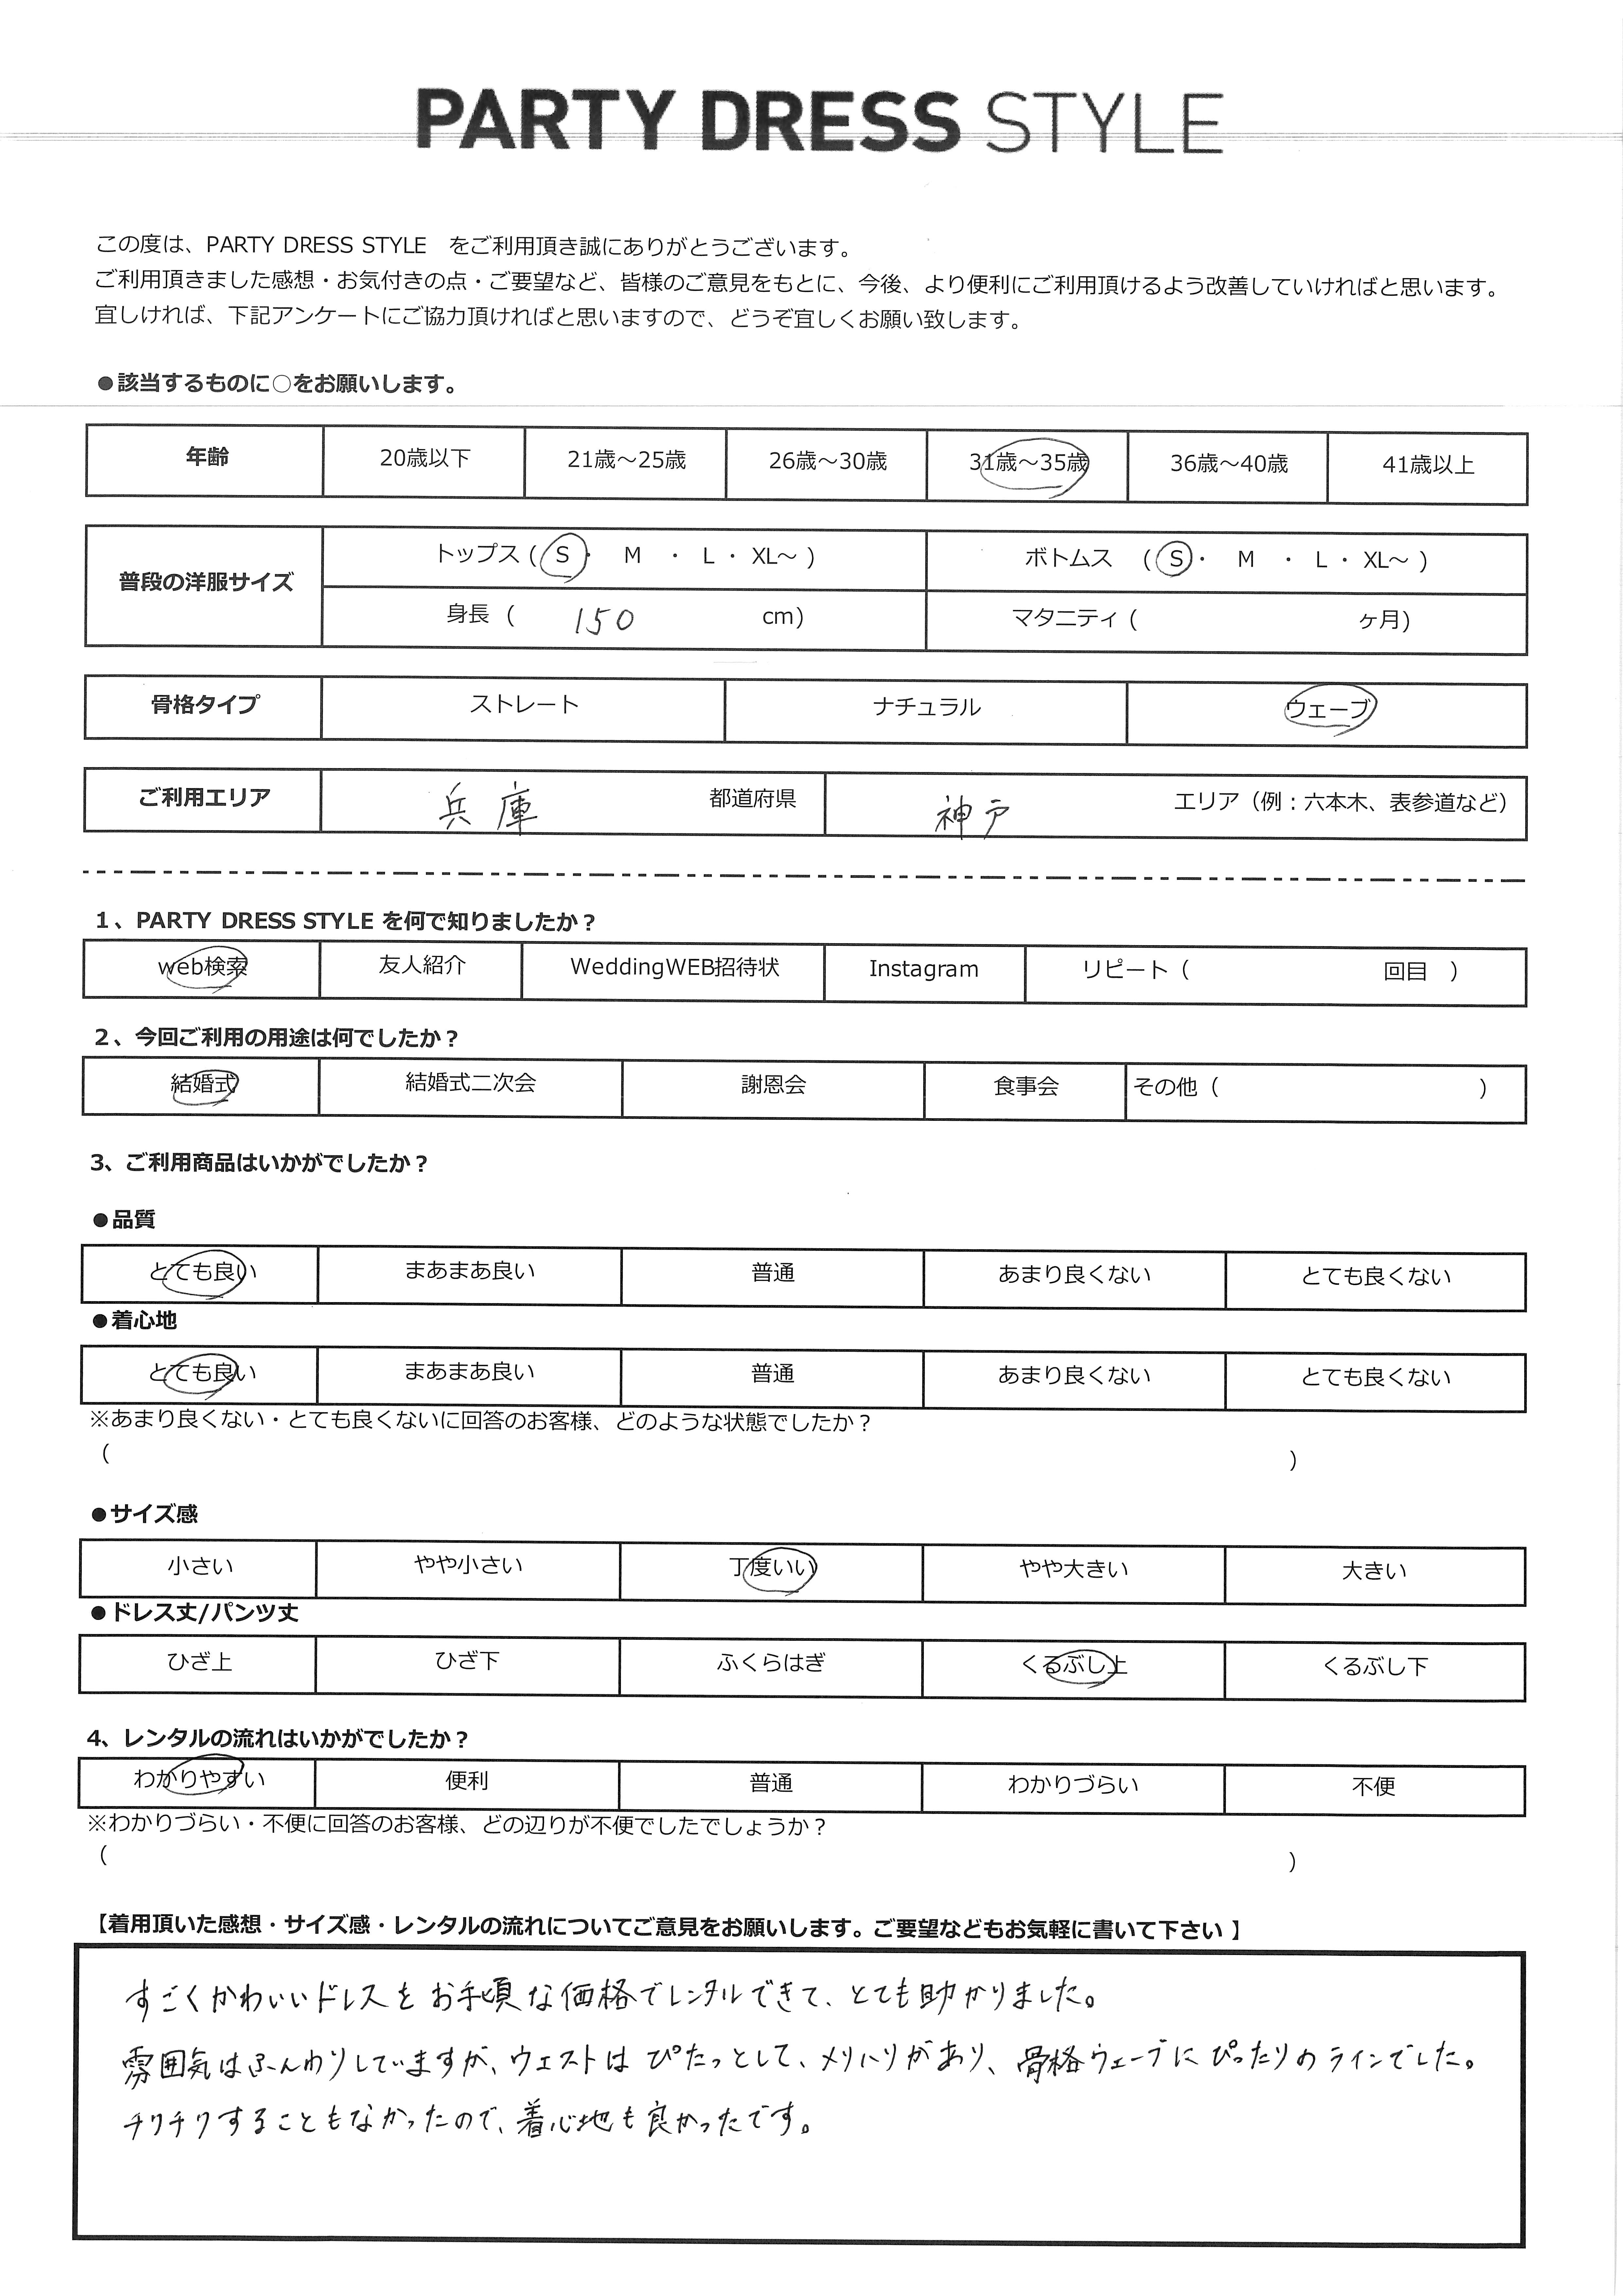 PARTY DRESS STYLE
この度は、PARTY DRESS STYLE　をご利用頂き誠にありがとうございます。
ご利用頂きました感想・お気付きの点・ご要望など、皆様のご意見をもとに、今後、より便利にご利用頂けるよう改善していければと思います。
宜しければ、下記アンケートにご協力頂ければと思いますので、どうぞ宜しくお願い致します。
●該当するものに○をお願いします。
年齢 20歳以下 21歳～25歳 26歳～30歳 31歳～35歳 36歳～40歳 41歳以上
普段の洋服サイズ
トップス ( S ・ M ・ L ・ XL～ ) ボトムス ( S ・ M ・ L ・ XL～ )
身長 ( 150 cm) マタニティ ( ヶ月)
骨格タイプ ストレート ナチュラル ウェーブ
ご利用エリア 兵庫 都道府県 神戸 エリア（例：六本木、表参道など）
1、PARTY DRESS STYLE を何で知りましたか？
web検索 友人紹介 WeddingWEB招待状 Instagram リピート（ 回目 ）
2、今回ご利用の用途は何でしたか？
結婚式 結婚式二次会 謝恩会 食事会 その他（ ）
3、ご利用商品はいかがでしたか？
●品質
とても良い まあまあ良い 普通 あまり良くない とても良くない
●着心地
とても良い まあまあ良い 普通 あまり良くない とても良くない
※あまり良くない・とても良くないに回答のお客様、どのような状態でしたか？
（ ）
●サイズ感
小さい やや小さい 丁度いい やや大きい 大きい
●ドレス丈/パンツ丈
ひざ上 ひざ下 ふくらはぎ くるぶし上 くるぶし下
4、レンタルの流れはいかがでしたか？
わかりやすい 便利 普通 わかりづらい 不便
※わかりづらい・不便に回答のお客様、どの辺りが不便でしたでしょうか？
（ ）
【着用頂いた感想・サイズ感・レンタルの流れについてご意見をお願いします。ご要望などもお気軽に書いて下さい 】
すごくかわいいドレスをお手頃な価格でレンタルできて、とても助かりました。
雰囲気はふんわりしていますが、ウェストはぴたっとして、メリハリがあり、骨格ウェーブにぴったりのラインでした。
チクチクすることもなかったので、着心地も良かったです。